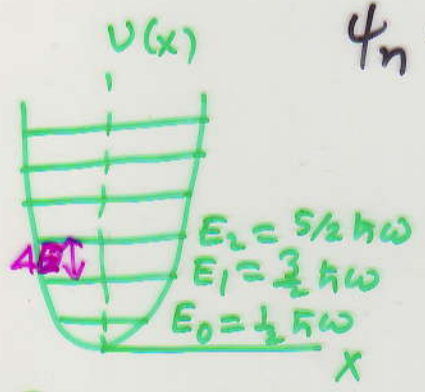 U(x)
ψn
ΔE
E₂ = 5/2 ħω
E₁ = 3/2 ħω
E₀ = 1/2 ħω
x